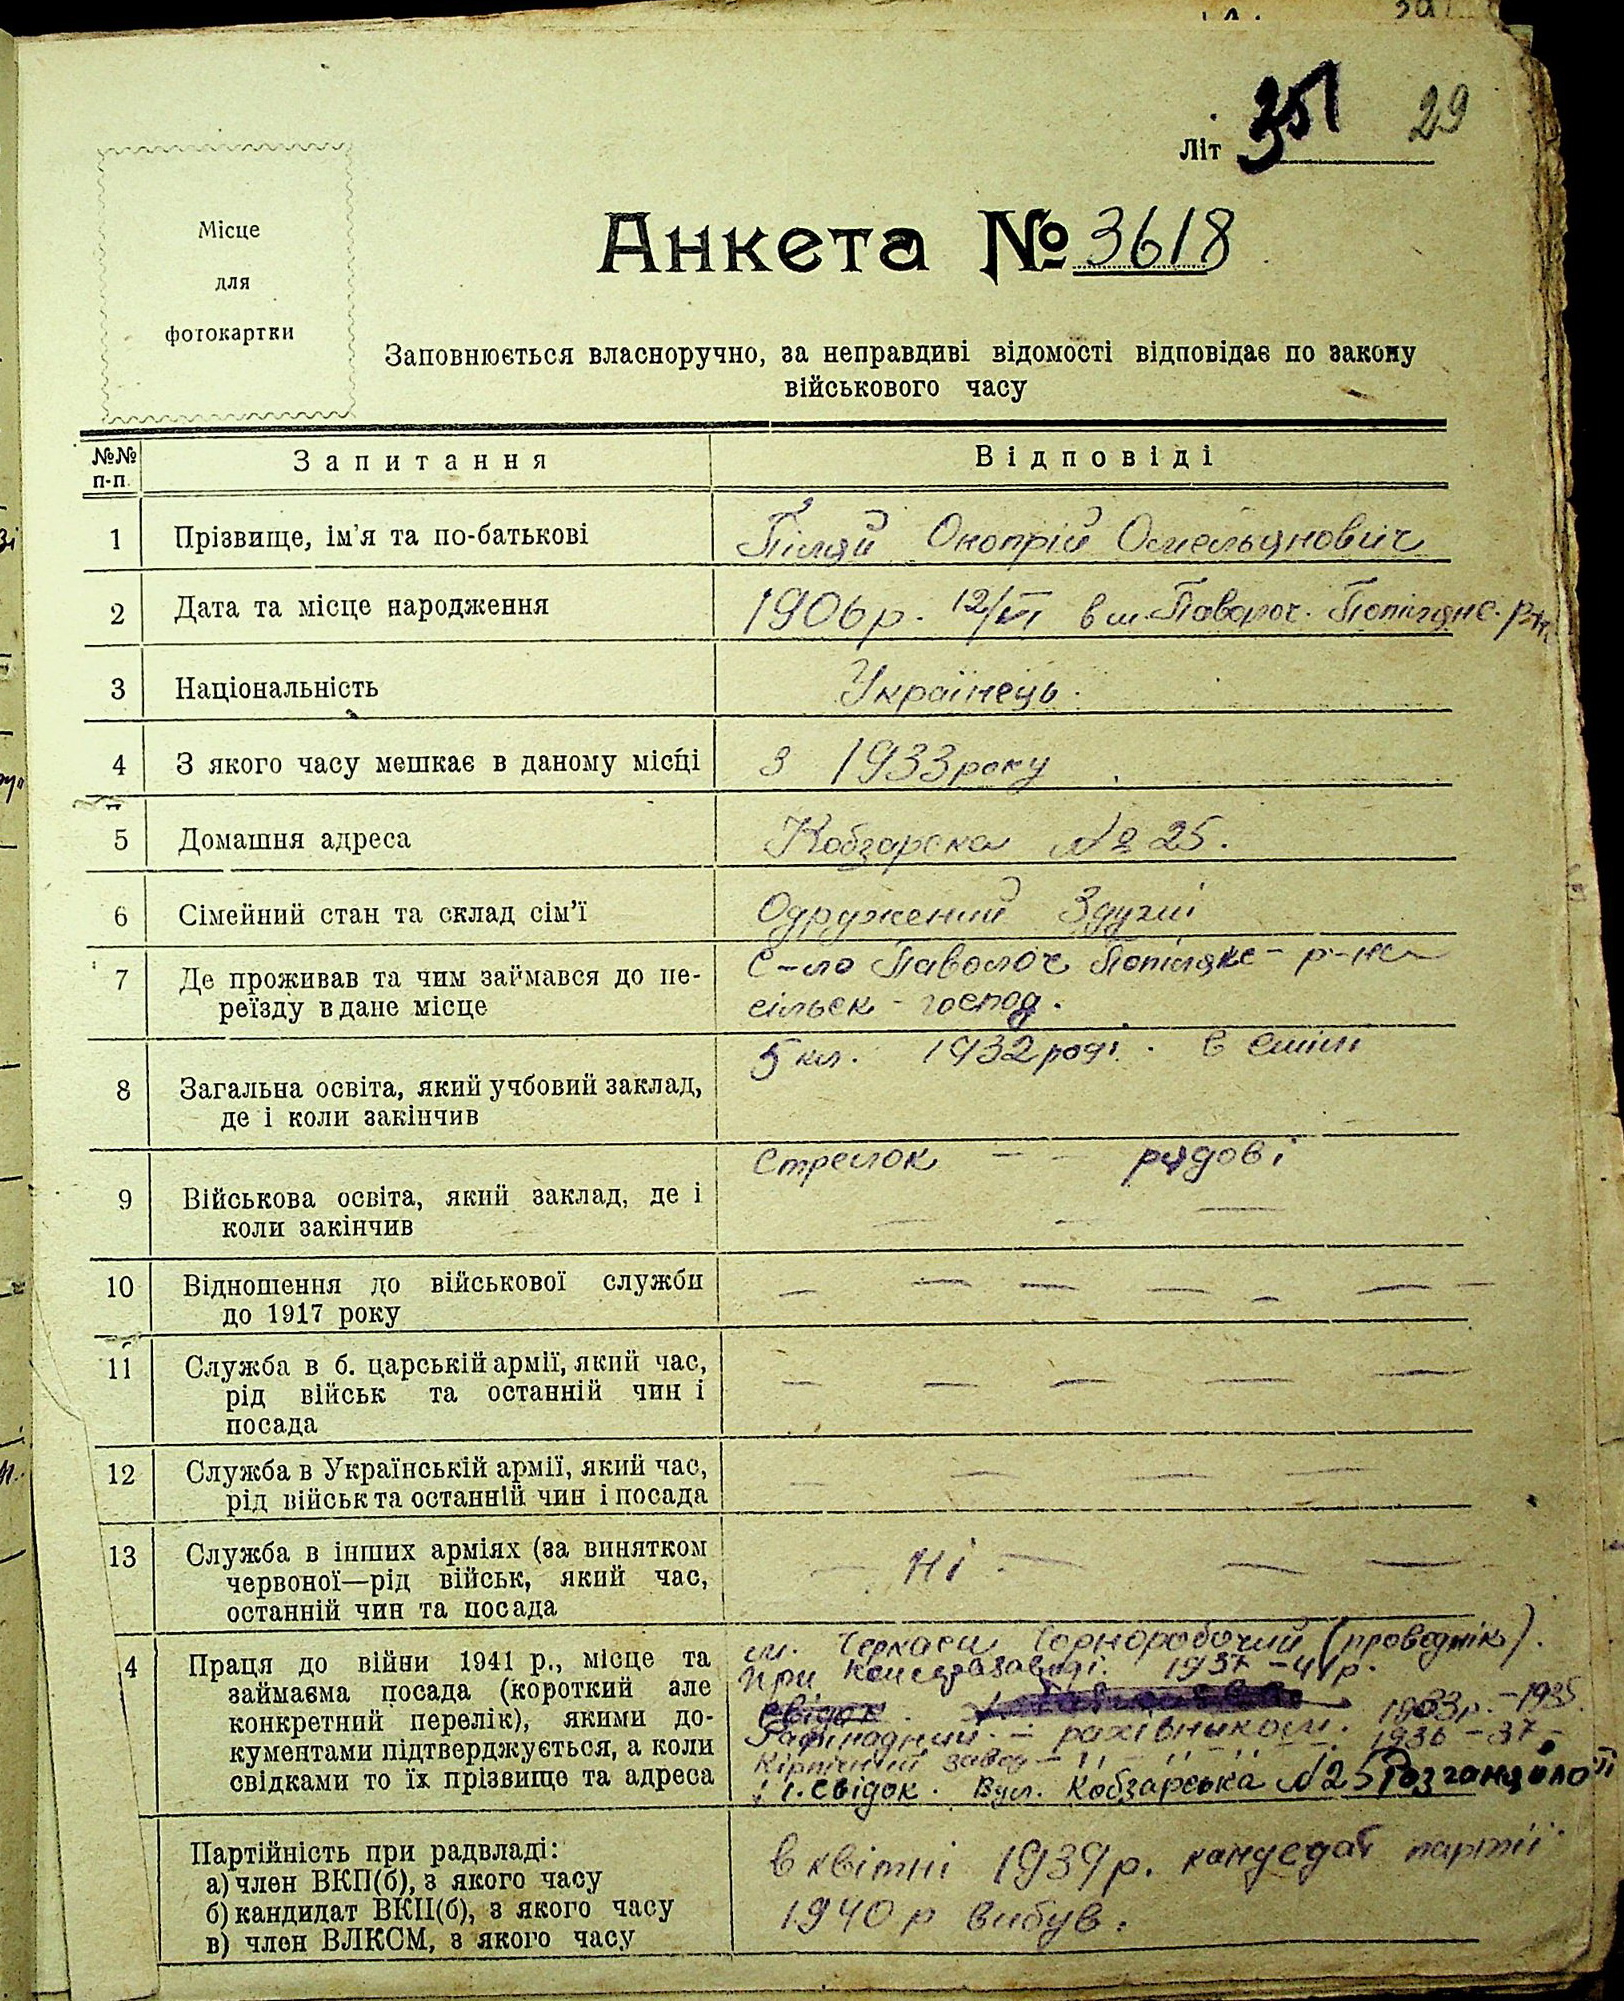 29
Літ 351
Місце
для
фотокартки
Анкета № 3618
Заповнюється власноручно, за неправдиві відомості відповідає по закону
військового часу
№№ п-п. Запитання Відповіді
1 Прізвище, ім'я та по-батькові Омельянович
2 Дата та місце народження 1906 р. 12/VI в
3 Національність Українець.
4 З якого часу мешкає в даному місці з 1933 року
5 Домашня адреса Кобзарска № 25.
6 Сімейний стан та склад сім'ї Одружений
7 Де проживав та чим займався до пе- С-ло Паволоч р-на
реїзду в дане місце сільск - господ.
8 Загальна освіта, який учбовий заклад, 5 кл. 1932 році. в
де і коли закінчив
9 Військова освіта, який заклад, де і Стрелок — — рядові
коли закінчив — — —
10 Відношення до військової служби — — — — — —
до 1917 року
11 Служба в б. царській армії, який час, — — — — —
рід військ та останній чин і
посада
12 Служба в Українській армії, який час, — — — —
рід військ та останній чин і посада
13 Служба в інших арміях (за винятком — Ні — — —
червоної—рід військ, який час,
останній чин та посада
4 Праця до війни 1941 р., місце та м. Черкаси Чорноробочий
займаєма посада (короткий але при 1937-41 р.
конкретний перелік), якими до- свідок. 1933 р.-1935
кументами підтверджується, а коли Рафінадний — рахівником. 1936-37
свідками то їх прізвище та адреса завод
1. Свідок. Вул. Кобзарська № 25
Партійність при радвладі:
а) член ВКП(б), з якого часу в квітні 1939 р. кандедат партії
б) кандидат ВКП(б), з якого часу 1940 р вибув.
в) член ВЛКСМ, з якого часу